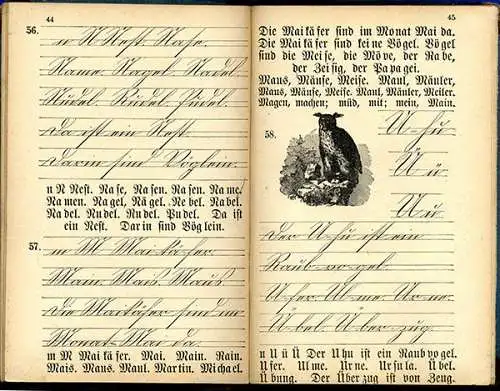 44
56.
n N Nest. Nase.
Name. Nagel. Nadel.
Nudel. Rudel. Pudel.
Da ist ein Nest.
Darin sind Vöglein.
n N Nest. Na se, Na sen. Na me.
Na men. Na gel, Nä gel. Ne bel. Na bel.
Na del. Nu del. Ru del. Pu del. Da ist
ein Nest. Dar in sind Vög lein.
57.
m M Mai käfer.
Main. Mais. Maus
Die Maikäfer sind im
Monat Mai da.
m M Mai kä fer. Mai. Main. Rain.
Mais. Maus. Maul. Mar tin. Mi cha el.
45
Die Mai kä fer sind im Mo nat Mai da.
Die Mai kä fer sind kei ne Vö gel. Vö gel
sind die Mei se, die Mö ve, der Ra be,
der Zei sig, der Pa pa gei.
Maus, Mäuse, Meise. Maul, Mäuler,
Maus, Mäuse, Meise. Maul, Mäuler, Meiler.
Magen, machen; müd, mit; mein, Main.
58.
U-hu
Ü ü
U u
Der U-hu ist ein
Raub-vo-gel.
U-fer. Ul-me. Ur-ne.
Ü-bel. Ü-ber-zug.
u U ü Ü Der U hu ist ein Raub vo gel.
U fer. Ul me. Ur ne. Ur su la. Ü bel.
Ü bung. Der Ü ber zug ist von Zeug.